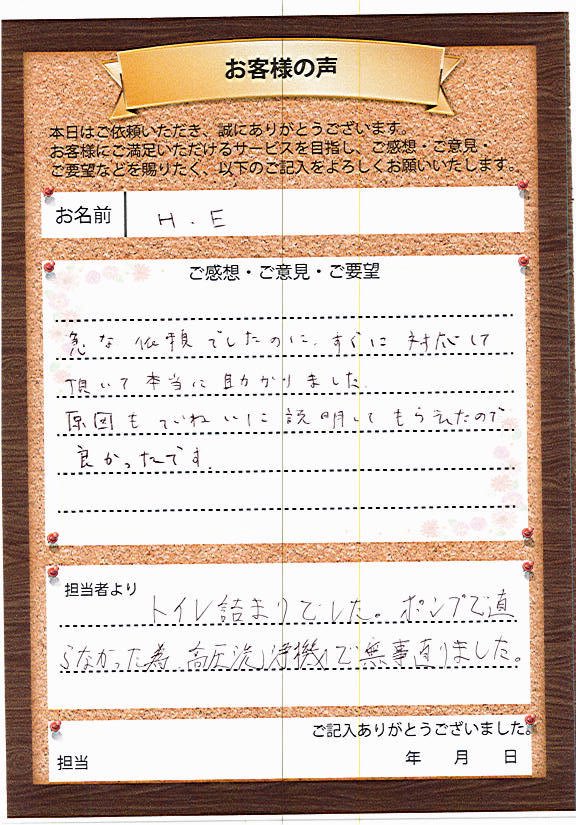 お客様の声
本日はご依頼いただき、誠にありがとうございます。
お客様にご満足いただけるサービスを目指し、ご感想・ご意見・
ご要望などを賜りたく、以下のご記入をよろしくお願いいたします。
お名前 H.E
ご感想・ご意見・ご要望
急な依頼でしたのに、すぐに対応して
頂いて本当に助かりました。
原因もていねいに説明してもらえたので
良かったです。
担当者より
トイレ詰まりでした。ポンプで直
らなかった為、高圧洗浄機で無事直りました。
ご記入ありがとうございました。
担当 年 月 日